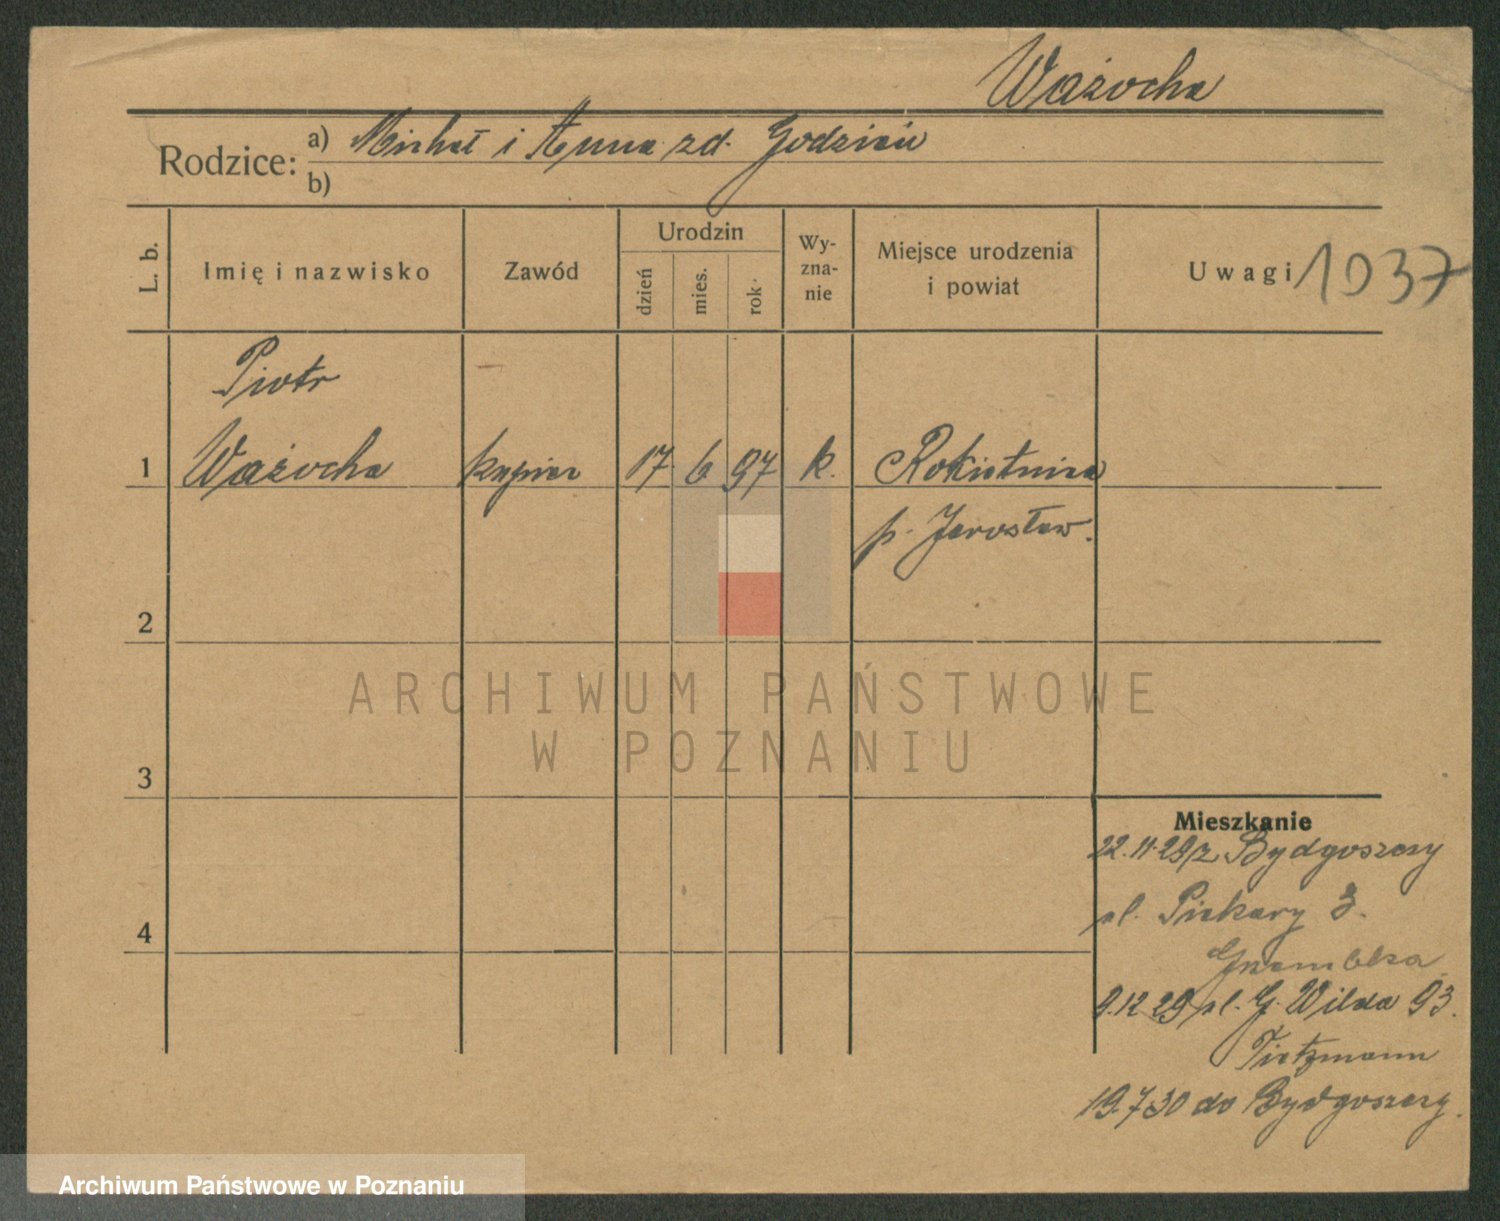 Ważocha
Rodzice: a) Michał i Anna zd. Godzień
b)
L. b.
Imię i nazwisko
Zawód
Urodzin
dzień
mies.
rok
Wy-
zna-
nie
Miejsce urodzenia
i powiat
Uwagi 1037
Piotr
1 Ważocha kupiec 17 6 97 k. Rokietnica
p. Jarosław.
2
ARCHIWUM PAŃSTWOWE
W POZNANIU
3
Mieszkanie
22.11.29 z Bydgoszczy
ul. Piekary 3.
4
9.12 29 ul. G. Wilda 93.
Tietzmann
19.7 30 do Bydgoszczy.
Archiwum Państwowe w Poznaniu